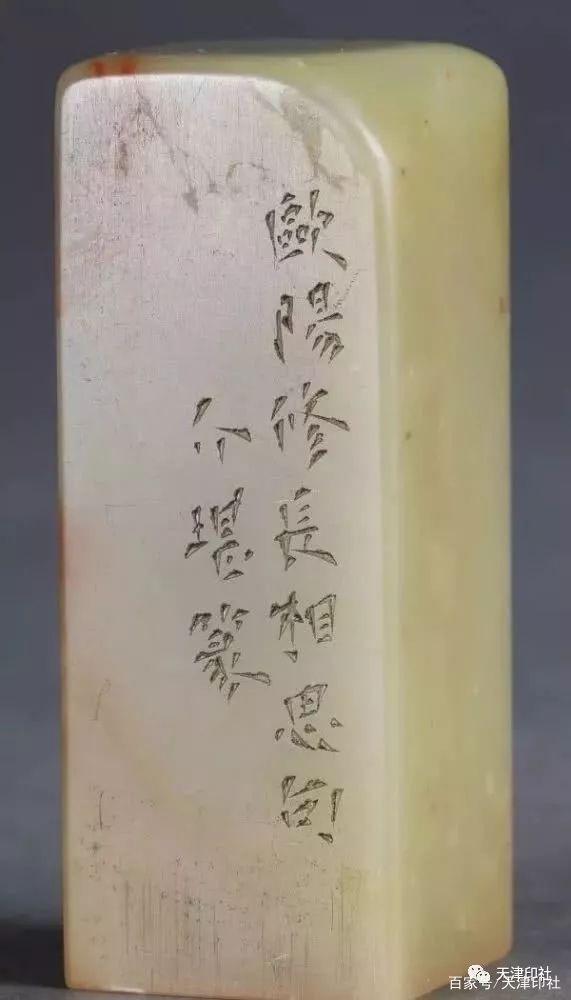 歐陽修長相思句
介堪篆
天津印社
百家号/天津印社